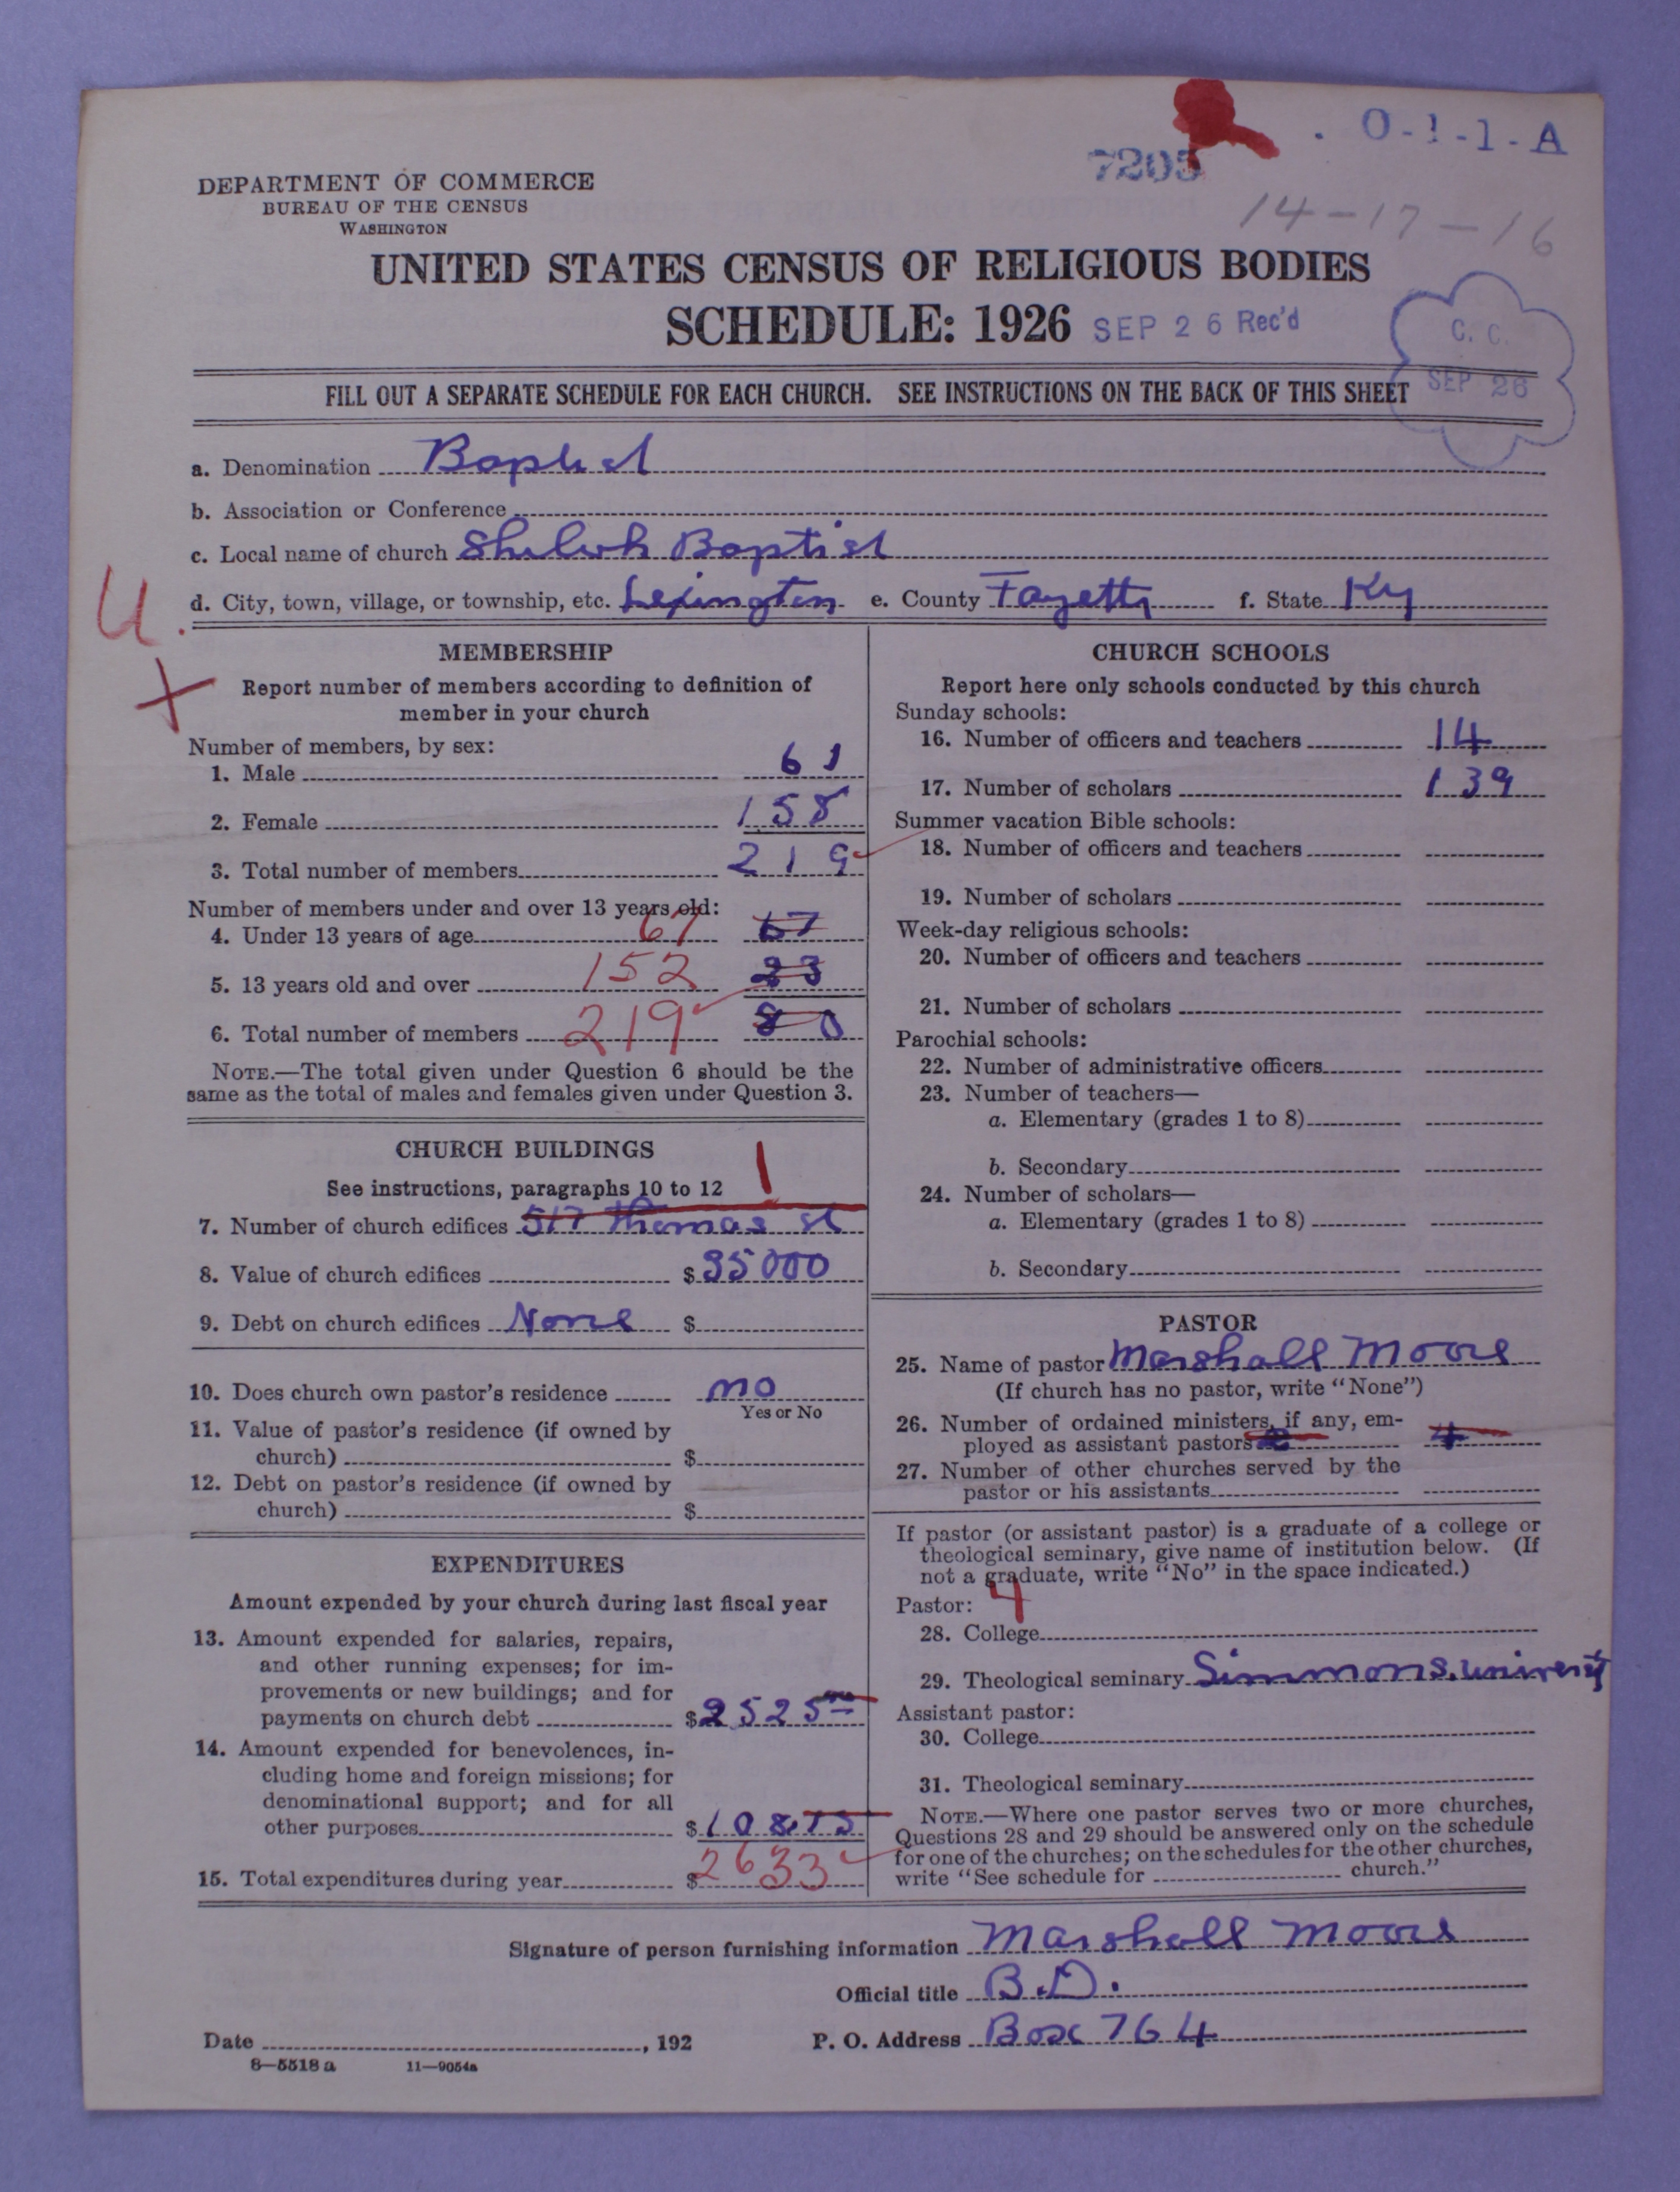 O-1-1-A
7205
14-17-16
DEPARTMENT OF COMMERCE
BUREAU OF THE CENSUS
WASHINGTON
UNITED STATES CENSUS OF RELIGIOUS BODIES
SCHEDULE: 1926 SEP 26 Rec'd
C. C.
SEP 26
FILL OUT A SEPARATE SCHEDULE FOR EACH CHURCH. SEE INSTRUCTIONS ON THE BACK OF THIS SHEET
a. Denomination Baptist
b. Association or Conference
c. Local name of church Shiloh Baptist
d. City, town, village, or township, etc. Lexington e. County Fayette f. State Ky
U.
X
MEMBERSHIP
Report number of members according to definition of
member in your church
Number of members, by sex:
1. Male 61
2. Female 158
3. Total number of members 219
Number of members under and over 13 years old:
4. Under 13 years of age 67 67
5. 13 years old and over 152 23
6. Total number of members 219 80
NOTE.—The total given under Question 6 should be the
same as the total of males and females given under Question 3.
CHURCH BUILDINGS
See instructions, paragraphs 10 to 12 1
7. Number of church edifices 517 Thomas St
8. Value of church edifices $ 35000
9. Debt on church edifices None $
10. Does church own pastor's residence no
Yes or No
11. Value of pastor's residence (if owned by
church) $
12. Debt on pastor's residence (if owned by
church) $
EXPENDITURES
Amount expended by your church during last fiscal year
13. Amount expended for salaries, repairs,
and other running expenses; for im-
provements or new buildings; and for
payments on church debt $ 2525
14. Amount expended for benevolences, in-
cluding home and foreign missions; for
denominational support; and for all
other purposes $ 108.75
15. Total expenditures during year $ 2633
CHURCH SCHOOLS
Report here only schools conducted by this church
Sunday schools:
16. Number of officers and teachers 14
17. Number of scholars 139
Summer vacation Bible schools:
18. Number of officers and teachers
19. Number of scholars
Week-day religious schools:
20. Number of officers and teachers
21. Number of scholars
Parochial schools:
22. Number of administrative officers
23. Number of teachers—
a. Elementary (grades 1 to 8)
b. Secondary
24. Number of scholars—
a. Elementary (grades 1 to 8)
b. Secondary
PASTOR
25. Name of pastor Marshall Moore
(If church has no pastor, write "None")
26. Number of ordained ministers, if any, em-
ployed as assistant pastors 4
27. Number of other churches served by the
pastor or his assistants
If pastor (or assistant pastor) is a graduate of a college or
theological seminary, give name of institution below. (If
not a graduate, write "No" in the space indicated.)
Pastor: 4
28. College
29. Theological seminary Simmons University
Assistant pastor:
30. College
31. Theological seminary
NOTE.—Where one pastor serves two or more churches,
Questions 28 and 29 should be answered only on the schedule
for one of the churches; on the schedules for the other churches,
write "See schedule for church."
Signature of person furnishing information Marshall Moore
Official title B.D.
Date , 192 P. O. Address Box 764
8—5518 a 11—9054a